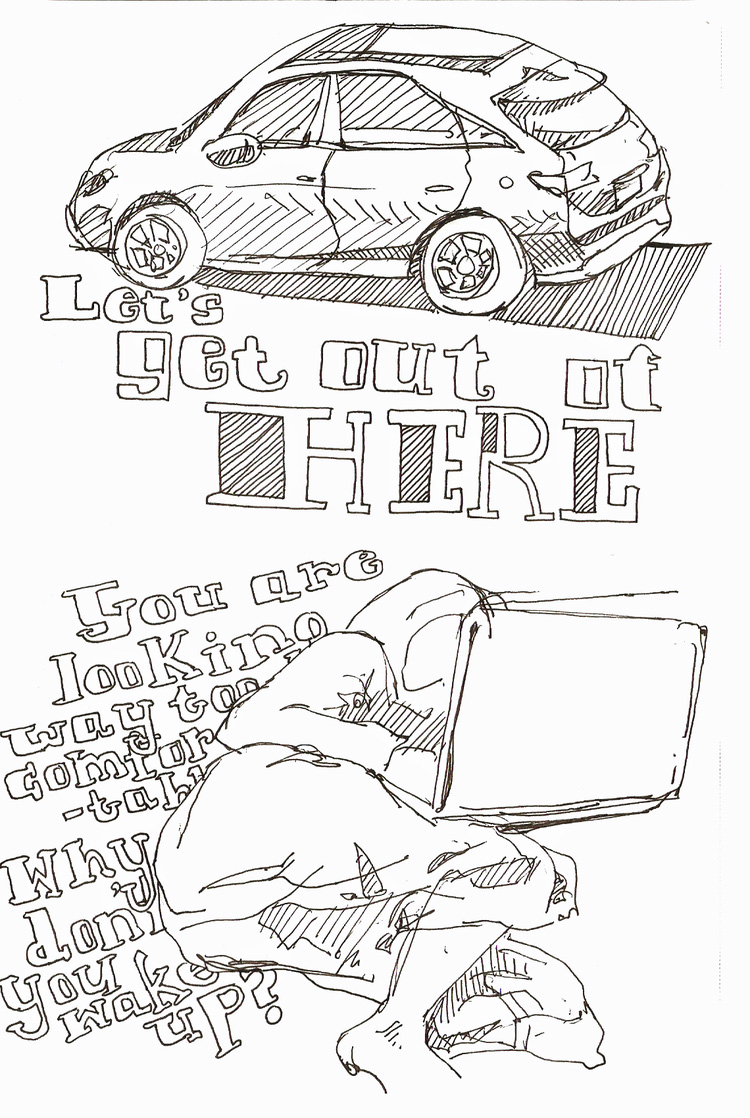 Let's
get out of
HERE
You are
looking
way too
comfor
-tabl
Why
don't
you wake
up?